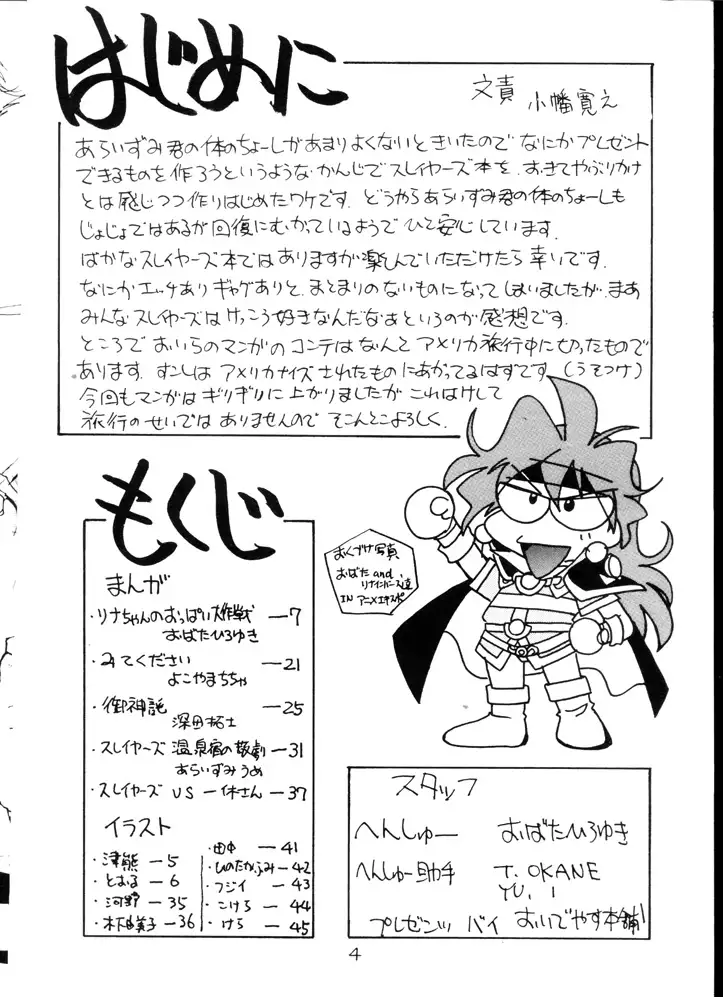 はじめに
文責 小幡寛え
あらいずみ君の体のちょーしがあまりよくないときいたのでなにかプレゼント
できるものを作ろうというようなかんじでスレイヤーズ本を、おきてやぶりかけ
とは感じつつ作りはじめたワケです。どうやらあらいずみ君の体のちょーしも
じょじょではあるが回復にむかっているようでひと安心しています。
ばかなスレイヤーズ本ではありますが楽しんでいただけたら幸いです。
なにかエッチありギャグありと、まとまりのないものになってしまいましたが、まあ
みんなスレイヤーズはけっこう好きなんだなあというのが感想です。
ところでおいらのマンガのコンテはなんとアメリカ旅行中に切ったもので
あります。すこしはアメリカナイズされたものにあがってるはずです(うそつけ)
今回もマンガはギリギリに上がりましたがこれはけして
旅行のせいではありませんのでそこんとこよろしく。
もくじ
まんが
・リナちゃんのおっぱい大作戦 ―7
おばたひろゆき
・みてください ―21
よこやまちちゃ
・御神託 ―25
深田拓士
・スレイヤーズ 温泉宿の散劇 ―31
あらいずみうめ
・スレイヤーズ VS 一休さん ―37
イラスト
・津熊 ―5
・とおる ―6
・河野 ―35
・木下由美子 ―36
・田中 ―41
・ひのたかふみ ―42
・フジイ ―43
・こけら ―44
・けら ―45
おくづけ写真
おばた and
リナインバース達
IN アニメエキスポ
スタッフ
へんしゅー おばたひろゆき
へんしゅー助手 T. OKANE
YU. I
プレゼンツ バイ おいでやす本舗
4